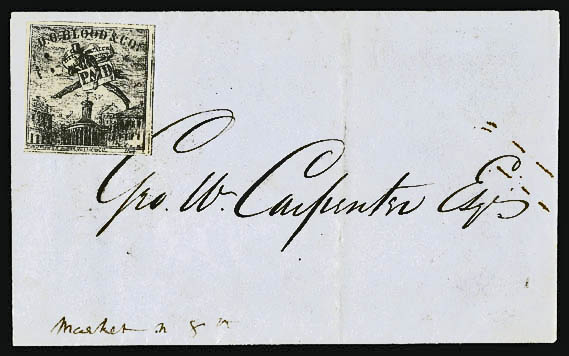 D.O. BLOOD & CO'S
PAID
Geo. W. Carpenter Esqr
Market n 8th